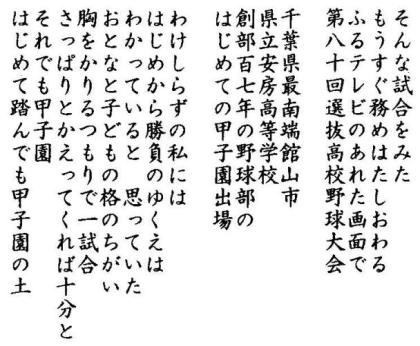 そんな試合をみた
もうすぐ務めはたしおわる
ふるテレビのあれた画面で
第八十回選抜高校野球大会
千葉県最南端館山市
県立安房高等学校
創部百七年の野球部の
はじめての甲子園出場
わけしらずの私には
はじめから勝負のゆくえは
わかっていると　思っていた
おとなと子どもの格のちがい
胸をかりるつもりで一試合
さっぱりとかえってくれば十分と
それでも甲子園
はじめて踏んでも甲子園の土